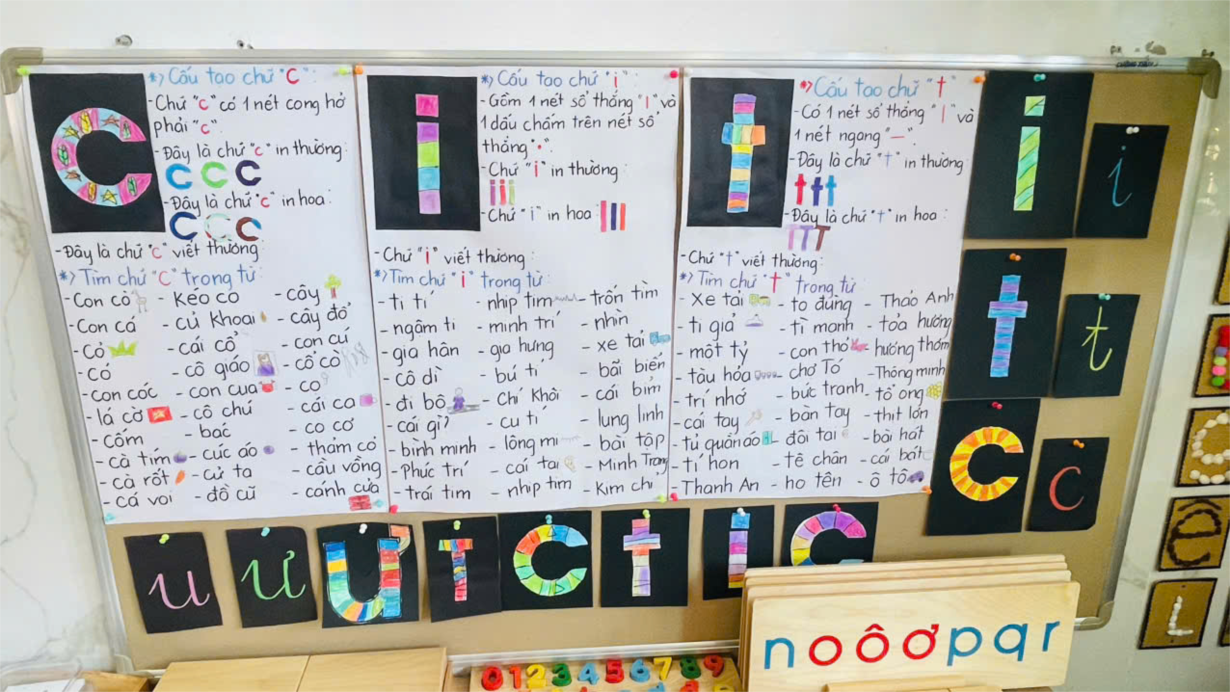 C
*) Cấu tạo chữ "C":
- Chữ "c" có 1 nét cong hở
phải "c".
- Đây là chữ "c" in thường:
c c c
- Đây là chữ "c" in hoa:
C C C
- Đây là chữ "c" viết thường:
*) Tìm chữ "C" trong từ:
- Con cò
- Con cá
- Cỏ
- Có
- con cóc
- lá cờ
- cốm
- cà tím
- cà rốt
- cá voi
- kéo co
- củ khoai
- cái cổ
- cô giáo
- con cua
- cô chú
- bác
- cúc áo
- cử tạ
- đồ cũ
- cây
- cây đổ
- con cú
- cổ cò
- cọ
- cái ca
- co cơ
- thảm cỏ
- cầu vồng
- cánh cửa
i
*) Cấu tạo chữ "i":
- Gồm 1 nét sổ thẳng "l" và
1 dấu chấm trên nét sổ
thẳng "•".
- Chữ "i" in thường:
i i i
- Chữ "i" in hoa:
I I I
- Chữ "i" viết thường:
*) Tìm chữ "i" trong từ:
- ti tí
- ngâm ti
- gia hân
- cô dì
- đi bộ
- cái gì?
- bình minh
- phúc trí
- trái tim
- nhịp tim
- minh trí
- gia hưng
- bú ti
- Chí Khôi
- cu tí
- lông mi
- cái tai
- nhịp tim
- trốn tìm
- nhìn
- xe tải
- bãi biển
- cái bỉm
- lung linh
- bài tập
- Minh Trang
- Kim chi
t
*) Cấu tạo chữ "t"
- Có 1 nét sổ thẳng "l" và
1 nét ngang "—".
- Đây là chữ "t" in thường:
t t t
- Đây là chữ "t" in hoa:
T T T
- Chữ "t" viết thường:
*) Tìm chữ "t" trong từ
- xe tải
- ti giả
- một tỷ
- tàu hỏa
- trí nhớ
- cái tay
- tủ quần áo
- tí hon
- Thanh An
- to đùng
- tỉ mạnh
- con thỏ
- chợ Tó
- bức tranh
- bàn tay
- đôi tai
- tê chân
- họ tên
- Thảo Anh
- tỏa hương
- hương thơm
- Thông minh
- tổ ong
- thịt lợn
- bài hát
- cái bát
- ô tô
i i
t t
c c
u ư ư T c t i c
n o ô ơ p q r
0 1 2 3 4 5 6 7 8 9
e
L